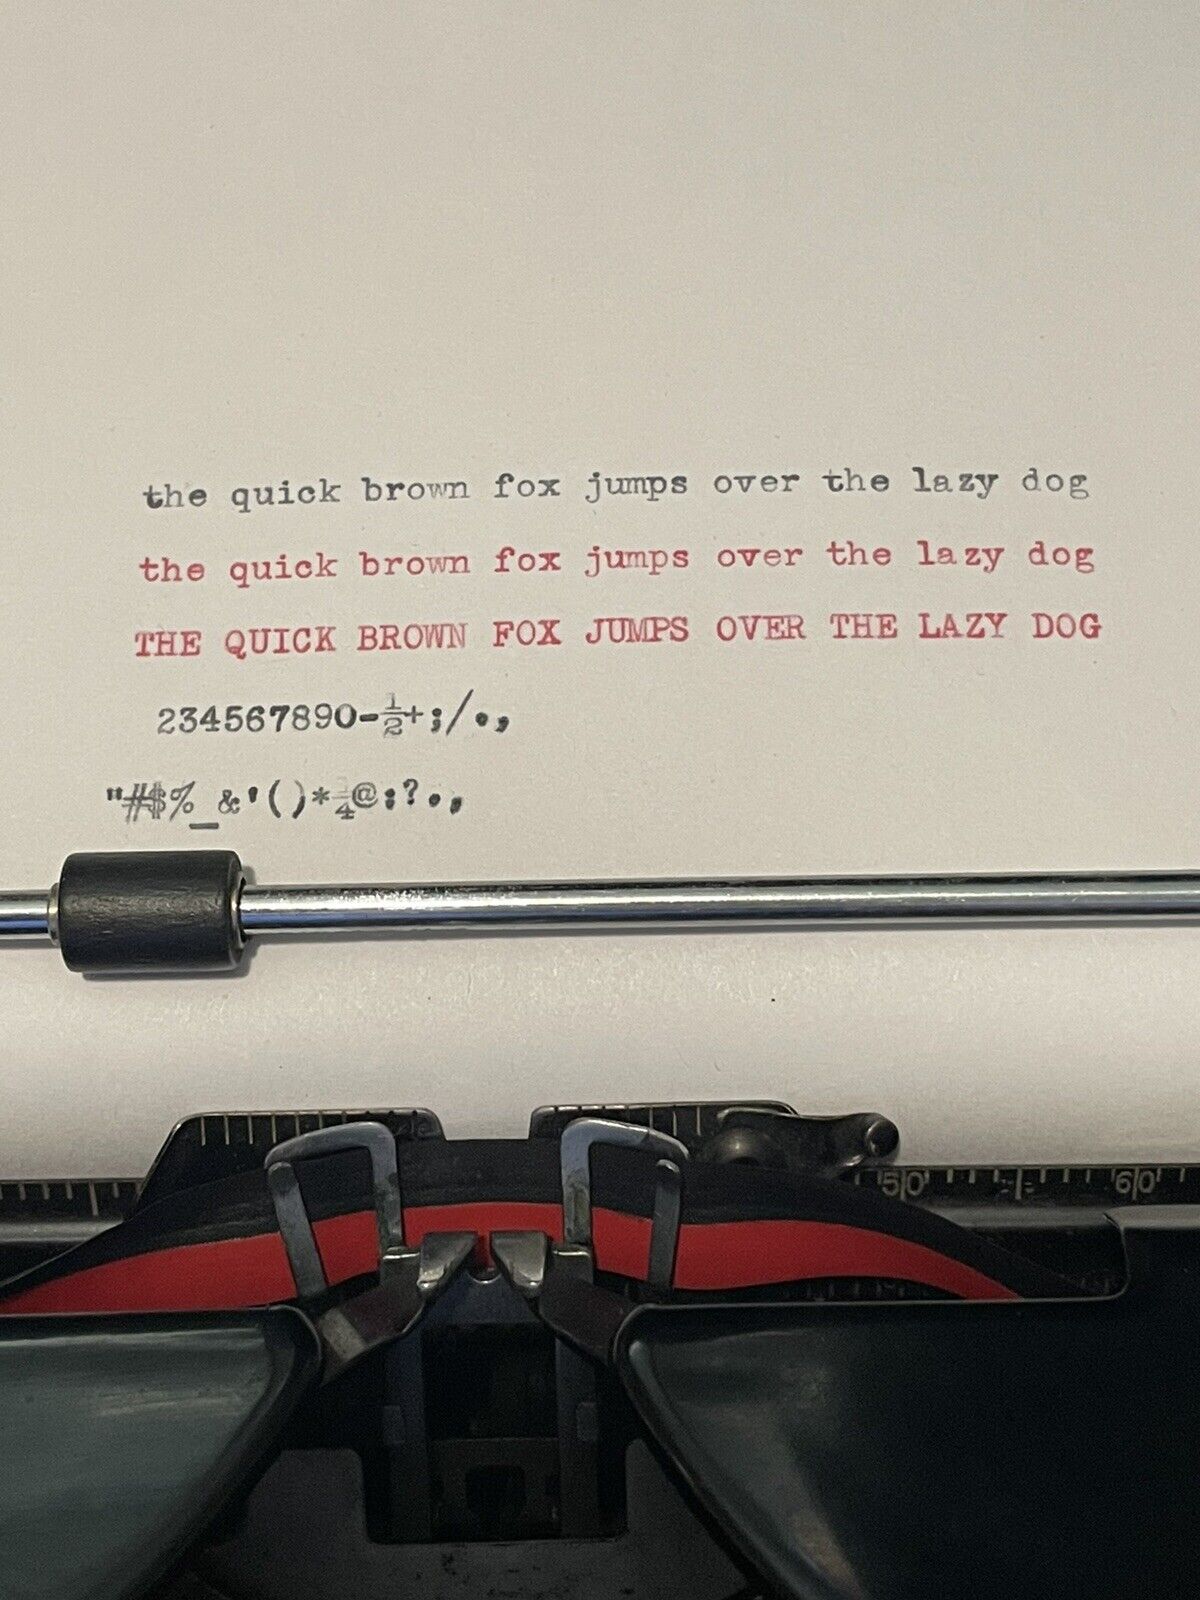 the quick brown fox jumps over the lazy dog
the quick brown fox jumps over the lazy dog
THE QUICK BROWN FOX JUMPS OVER THE LAZY DOG
234567890-½+;/.,
"#$%_&'()*¼@:?.,
50 60